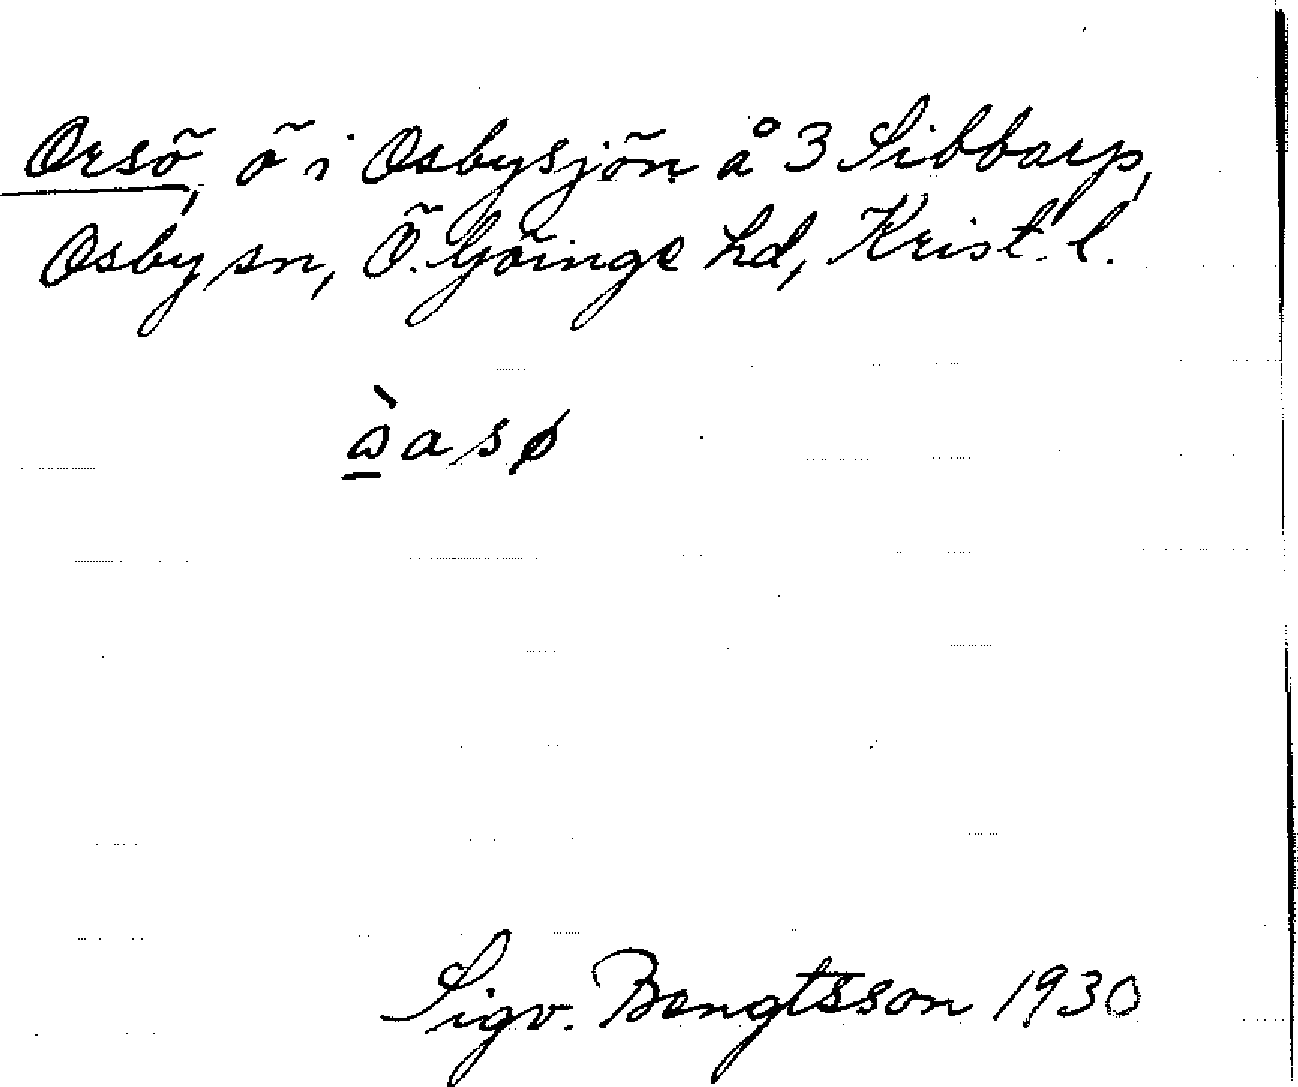 Orsö, ö i Osbysjön å 3 Sibbarp,
Osby sn, Ö. Göinge hd, Krist. l.
Sigv. Bengtsson 1930